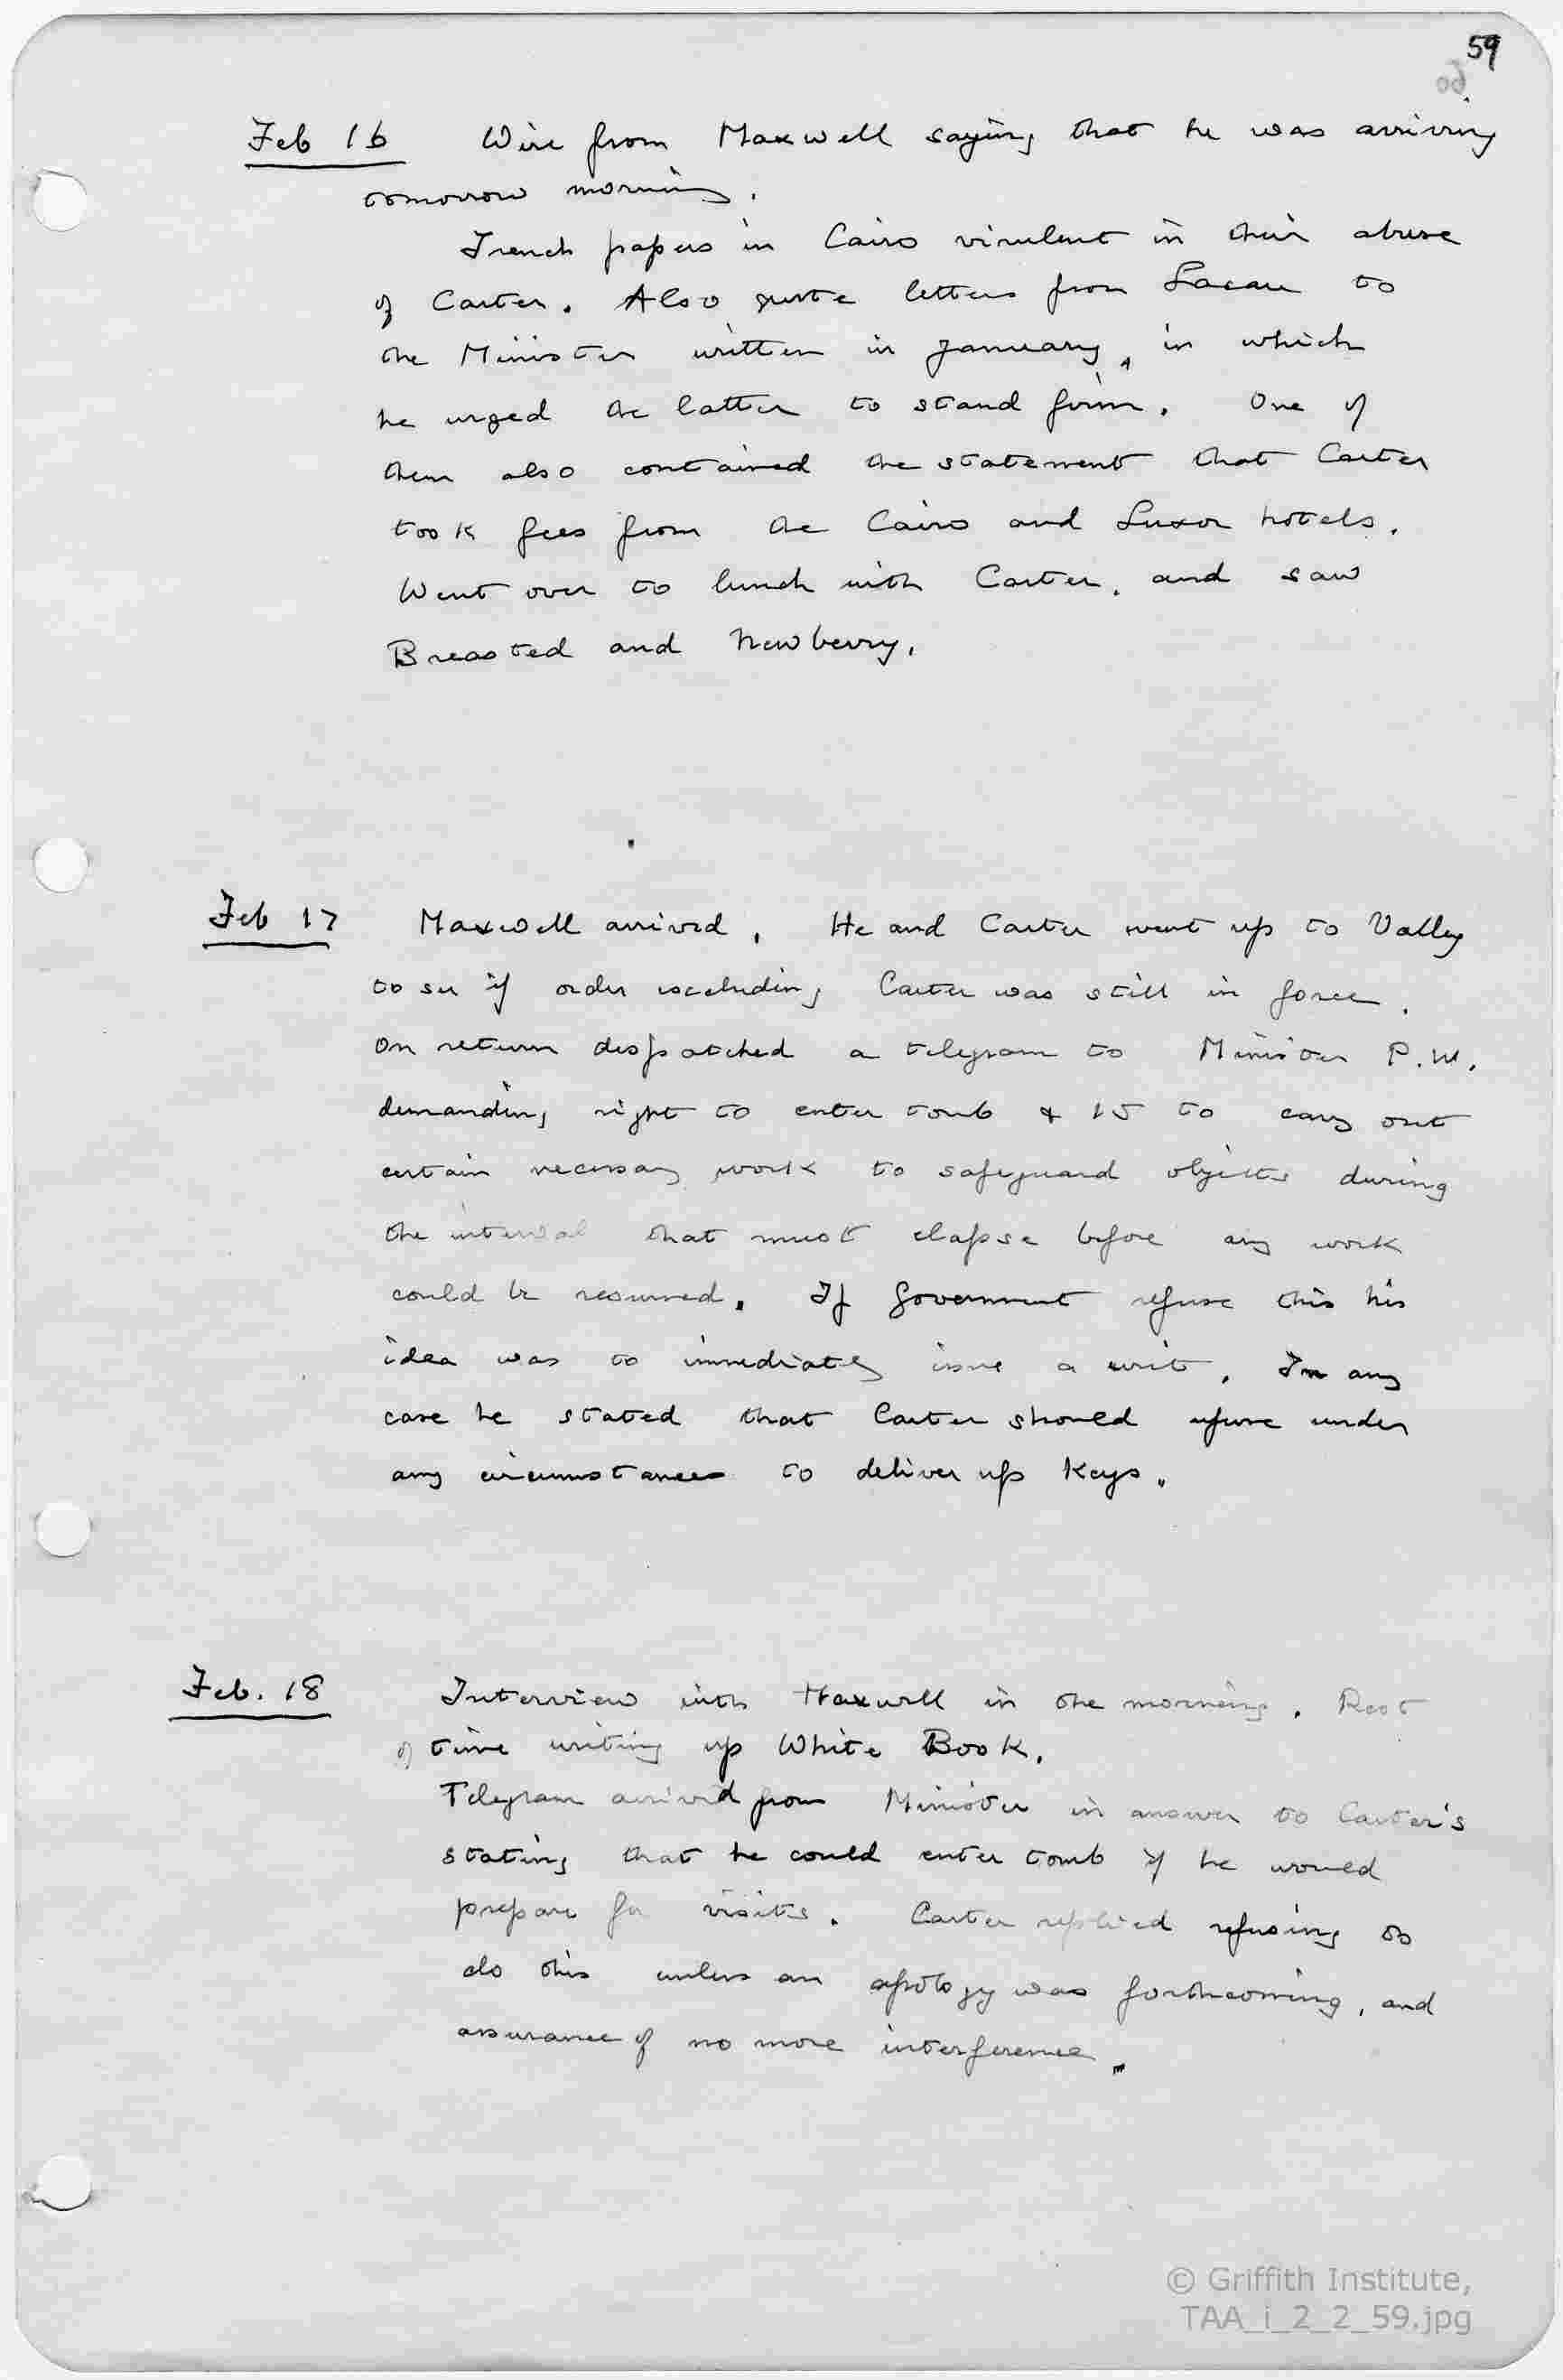 59
60
Feb 16 Wire from Maxwell saying that he was arriving
tomorrow morning.
French papers in Cairo virulent in their abuse
of Carter. Also quote letters from Lacau to
the Minister written in January, in which
he urged the latter to stand firm. One of
them also contained the statement that Carter
took fees from the Cairo and Luxor hotels.
Went over to lunch with Carter, and saw
Breasted and Newberry.
Feb 17 Maxwell arrived. He and Carter went up to Valley
to see if order excluding Carter was still in force.
On return dispatched a telegram to Minister P.W.
demanding right to enter tomb & 15 to carry out
certain necessary work to safeguard objects during
the interval that must elapse before any work
could be resumed. If Government refuse this his
idea was to immediately issue a writ. In any
case he stated that Carter should refuse under
any circumstances to deliver up keys.
Feb. 18 Interview with Maxwell in the morning. Rest
of time writing up White Book.
Telegram arrived from Minister in answer to Carter's
stating that he could enter tomb if he would
prepare for visits. Carter replied refusing to
do this unless an apology was forthcoming, and
assurance of no more interference.
© Griffith Institute,
TAA_i_2_2_59.jpg